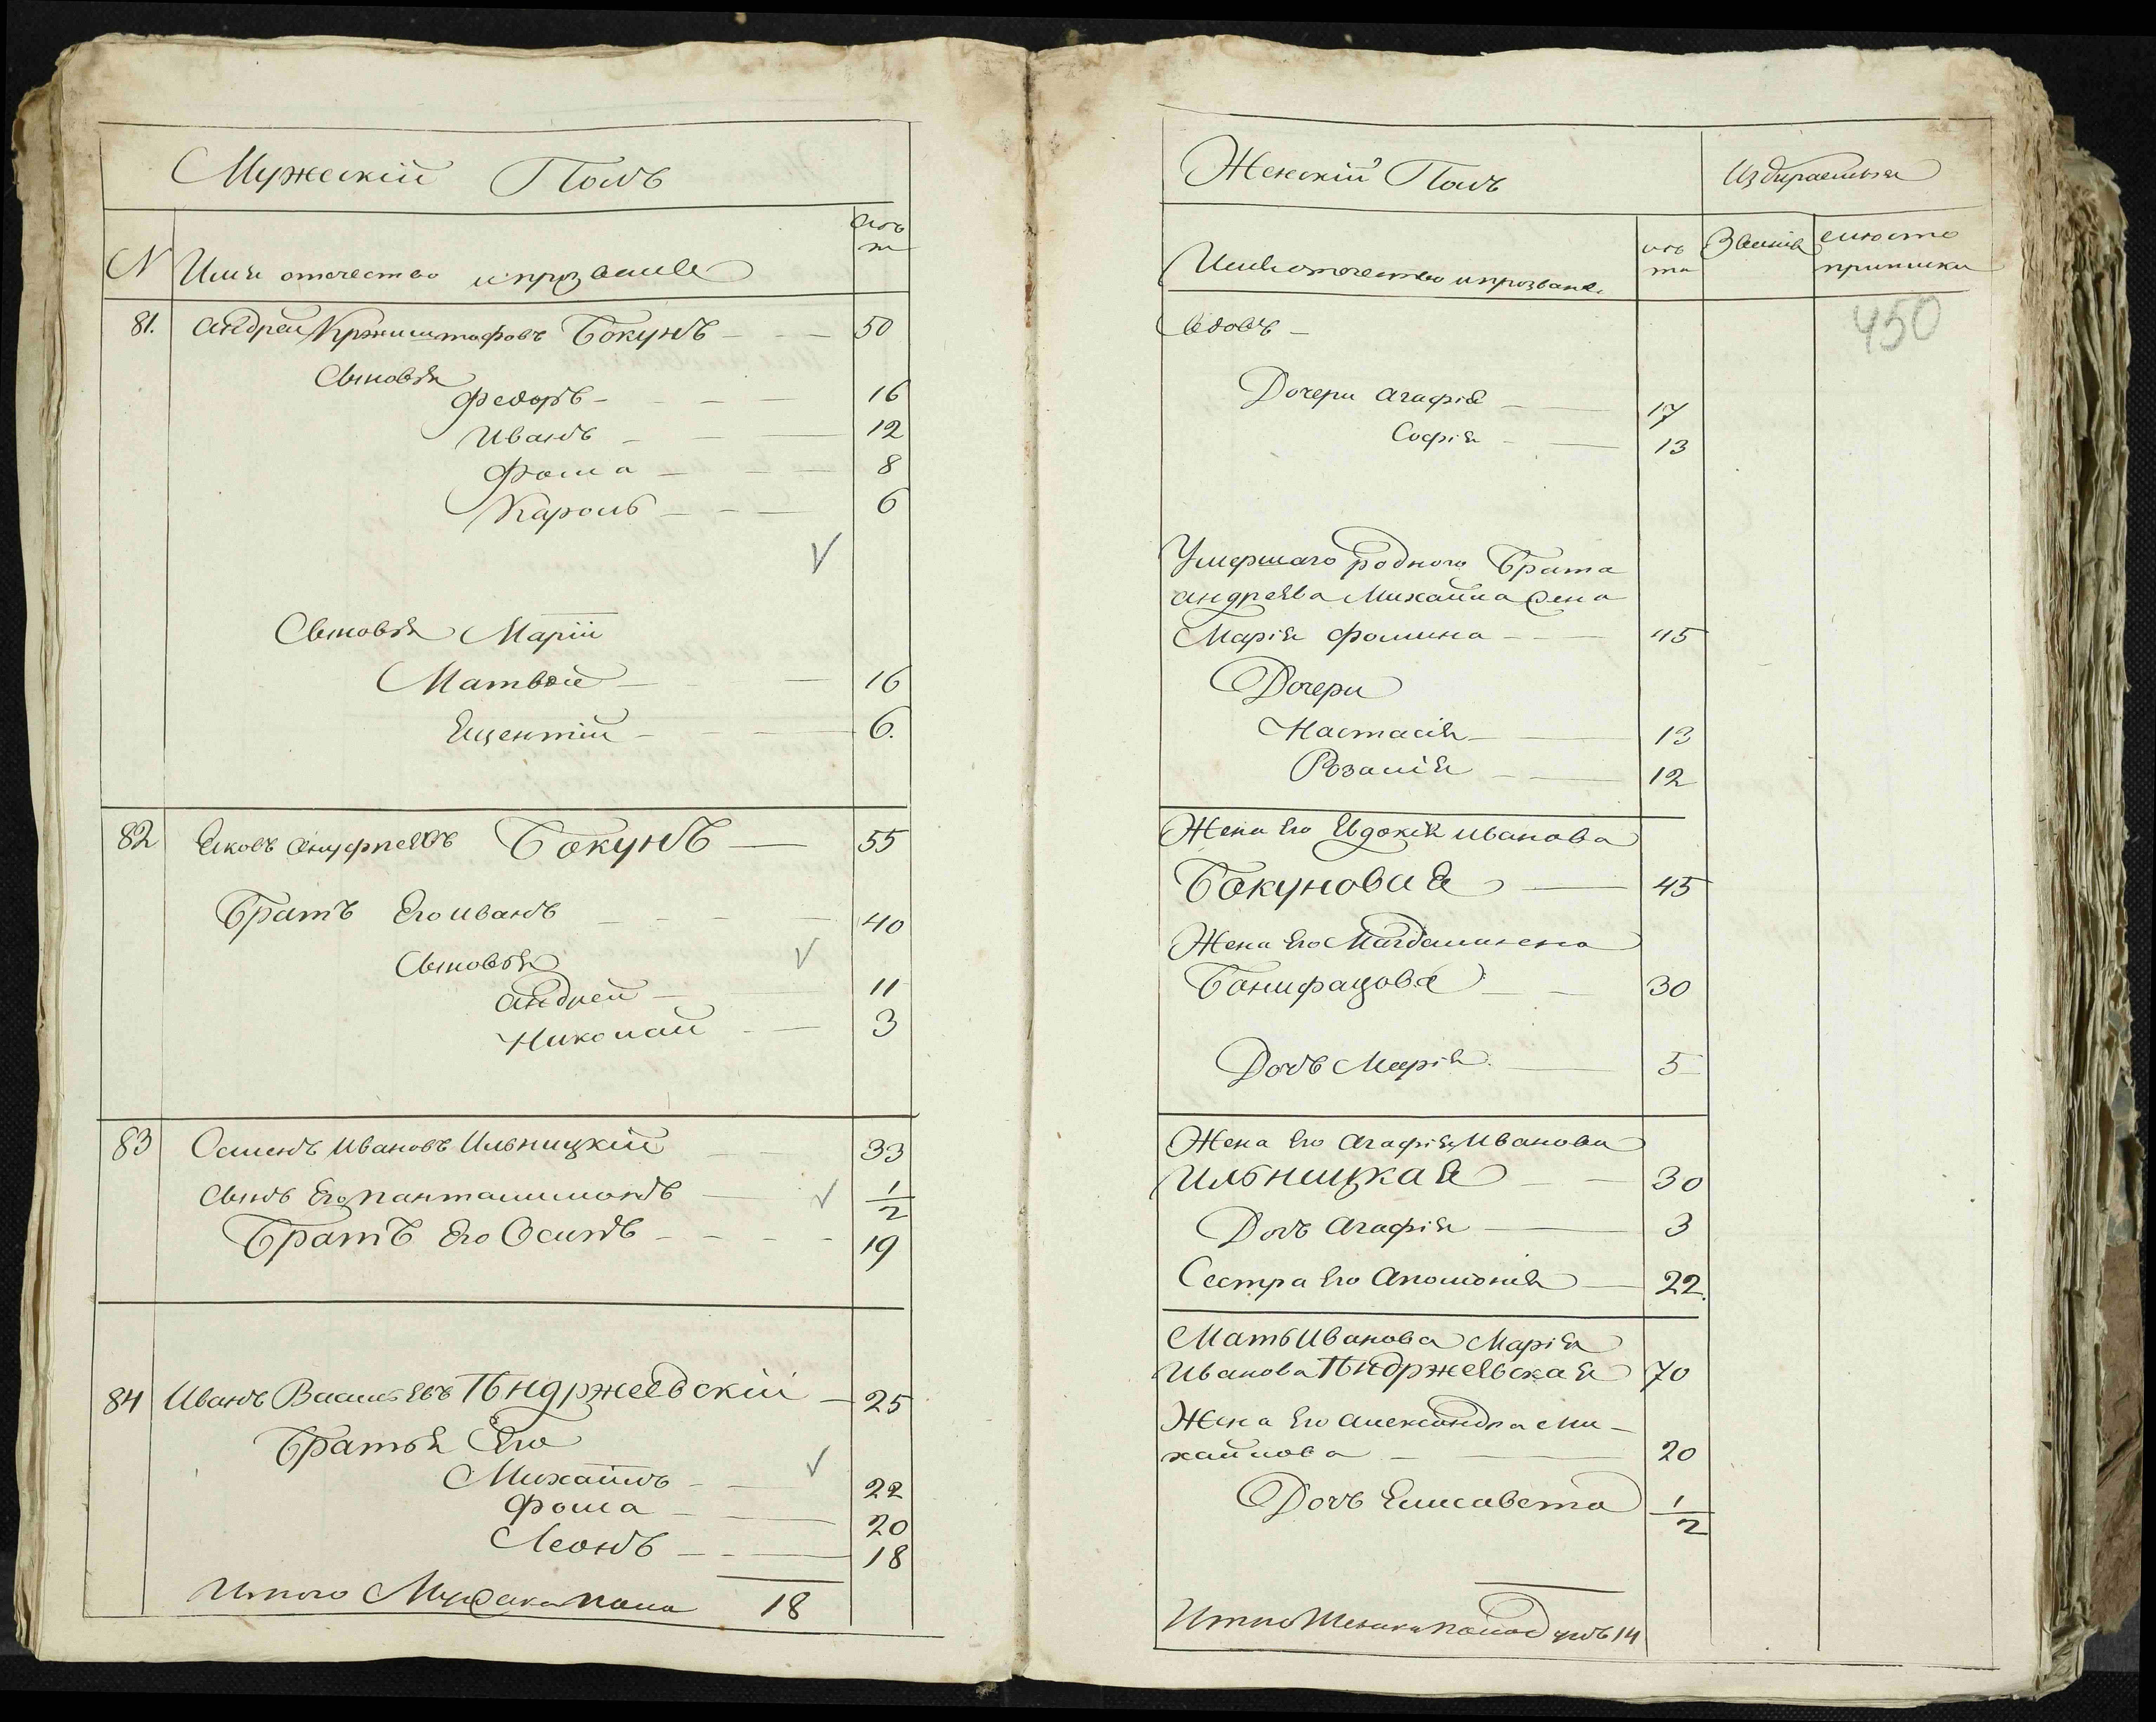 Мужескій Полъ
лѣта
N Имя отечество и прозваніе
81. Андрей Кржиштофовъ Бокунъ - - - 50
Сыновья
Федоръ - - - - 16
Иванъ - - - 12
Фома - - - 8
Кароль - - - 6
Сыновья Маріи
Матвѣй - - 16
Вицентій - - - 6.
82 Яковъ Ануфріевъ Бокунъ - 55
Братъ Его Иванъ - - - - 40
Сыновья
Андрей - - 11
Николай - - 3
83 Семенъ Ивановъ Ильницкій - - 33
Сынъ Его Панталимонъ - 1/2
Братъ Его Осипъ - - - - 19
84 Иванъ Васильевъ Пндржеевскій - 25
Братья Его
Михайлъ - - 22
Фома - - 20
Леонъ - - - 18
Итого Мужска пола 18
Женскій Полъ
Избираемыя
Имя отечество и прозваніе
лѣта
Званія
мѣсто
приписки
450
Вдовъ -
Дочери Агафія - - 17
Софія - - 13
Умершаго родного Брата
Андреева Михайла жена
Марія Фомина - - - 45
Дочери
Настасія - - 13
Розалія - - 12
Жена Его Евдокія Иванова
Бокуновая - 45
Жена Его Магдалинена
Бонифацова - - 30
Дочь Марія. - 5
Жена Его Агафія Иванова
Ильницкая - - 30
Дочь Агафія - 3
Сестра Его Аполонія - 22.
Мать Иванова Марія
Иванова Пндржеевская 70
Жена Его Александра Ми-
хайлова - - 20
Дочь Елисавета 1/2
Итого Женска пола душъ 14